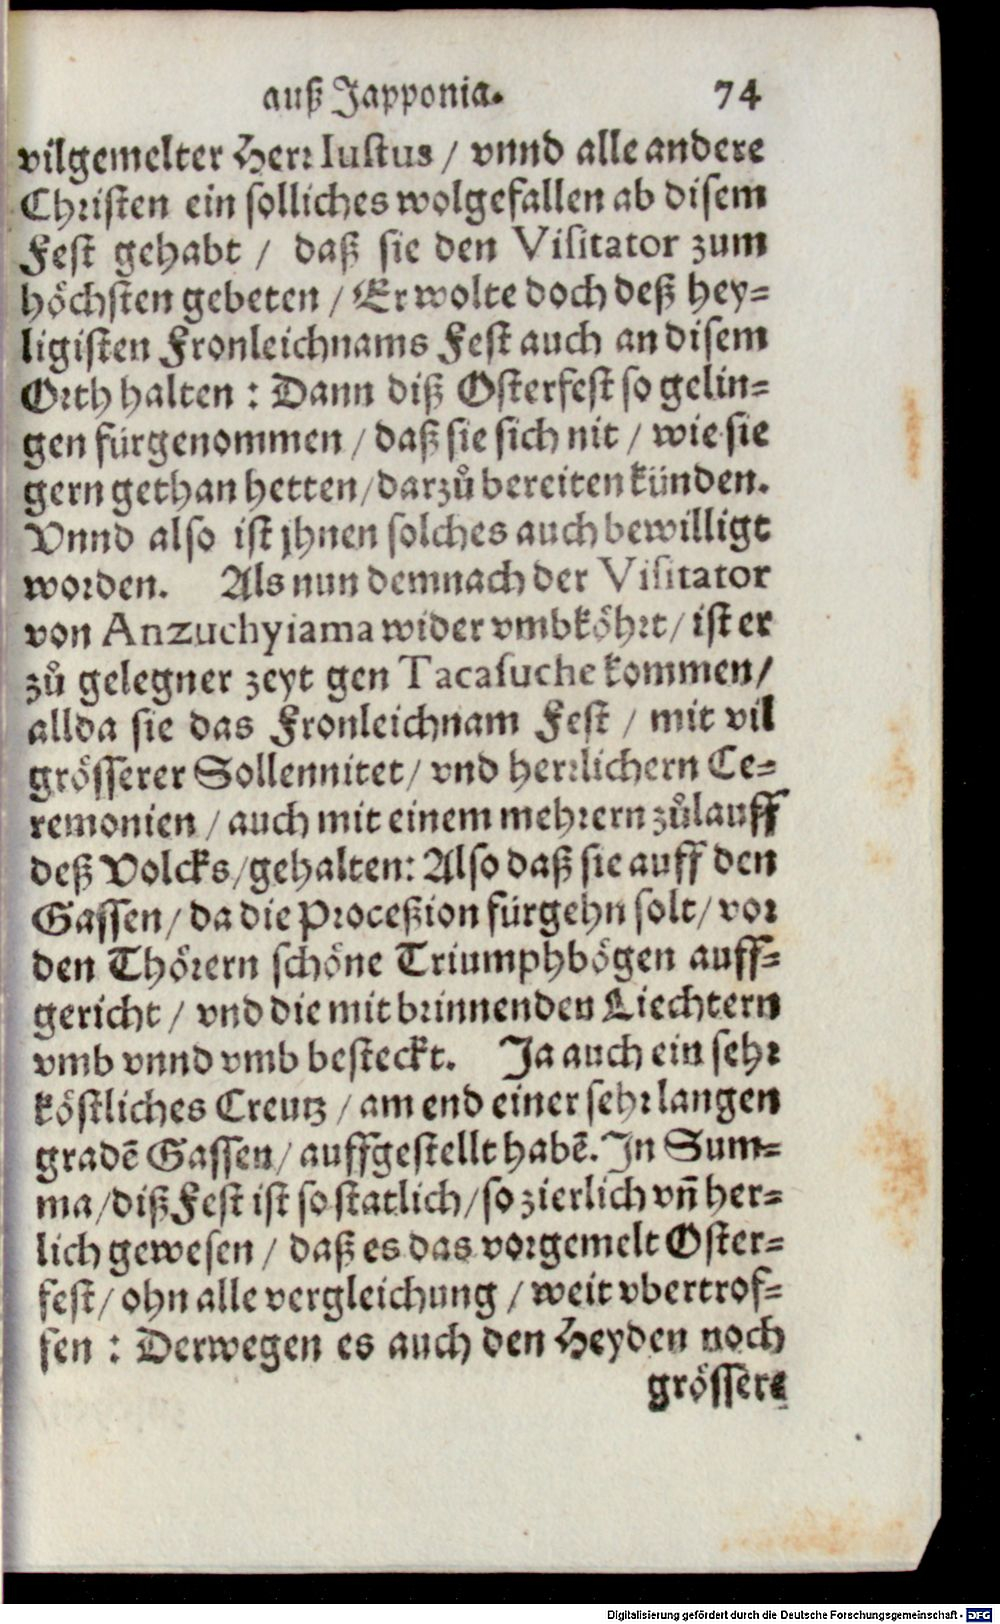 auß Japponia. 74
vilgemelter Herr Iustus / vnnd alle andere
Christen ein solliches wolgefallen ab disem
Fest gehabt / daß sie den Visitator zum
höchsten gebeten / Er wolte doch deß hey=
ligisten Fronleichnams Fest auch an disem
Orth halten : Dann diß Osterfest so gelin=
gen fürgenommen / daß sie sich nit / wie sie
gern gethan hetten / darzů bereiten künden.
Vnnd also ist jhnen solches auch bewilligt
worden. Als nun demnach der Visitator
von Anzuchyiama wider vmbköhrt / ist er
zů gelegner zeyt gen Tacasuche kommen /
allda sie das Fronleichnam Fest / mit vil
grösserer Sollennitet / vnd herrlichern Ce=
remonien / auch mit einem mehrern zůlauff
deß Volcks / gehalten: Also daß sie auff den
Gassen / da die Proceßion fürgehn solt / vor
den Thörern schöne Triumphbögen auff=
gericht / vnd die mit brinnenden Liechtern
vmb vnnd vmb besteckt. Ja auch ein sehr
köstliches Creutz / am end einer sehr langen
gradē Gassen / auffgestellt habē. In Sum=
ma / diß Fest ist so statlich / so zierlich vñ her=
lich gewesen / daß es das vorgemelt Oster=
fest / ohn alle vergleichung / weit vbertrof=
fen : Derwegen es auch den Heyden noch
grössere
Digitalisierung gefördert durch die Deutsche Forschungsgemeinschaft - DFG